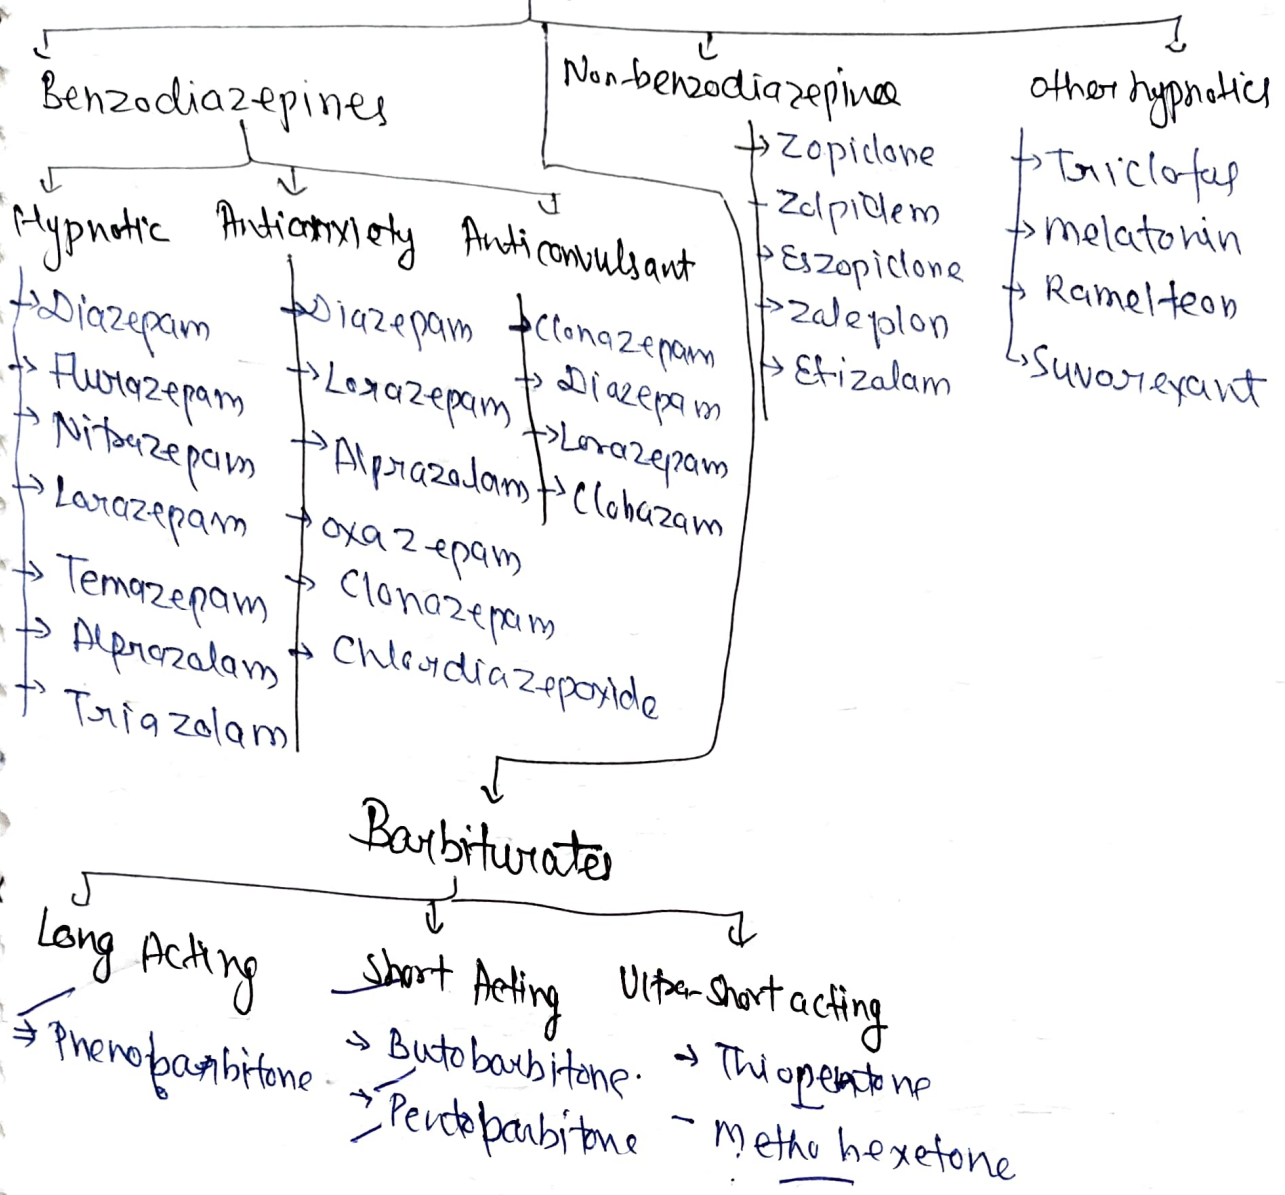 Benzodiazepines
Hypnotic
Diazepam
Flurazepam
Nitrazepam
Lorazepam
Temazepam
Alprazolam
Triazolam
Antianxiety
Diazepam
Lorazepam
Alprazolam
Oxazepam
Clonazepam
Chlordiazepoxide
Anticonvulsant
Clonazepam
Diazepam
Lorazepam
Clobazam
Non-benzodiazepines
Zopiclone
Zolpidem
Eszopiclone
Zaleplon
Etizolam
Other hypnotics
Triclofos
Melatonin
Ramelteon
Suvorexant
Barbiturates
Long Acting
Phenobarbitone
Short Acting
Butobarbitone.
Pentobarbitone
Ultra-Short acting
Thiopentone
Methohexetone